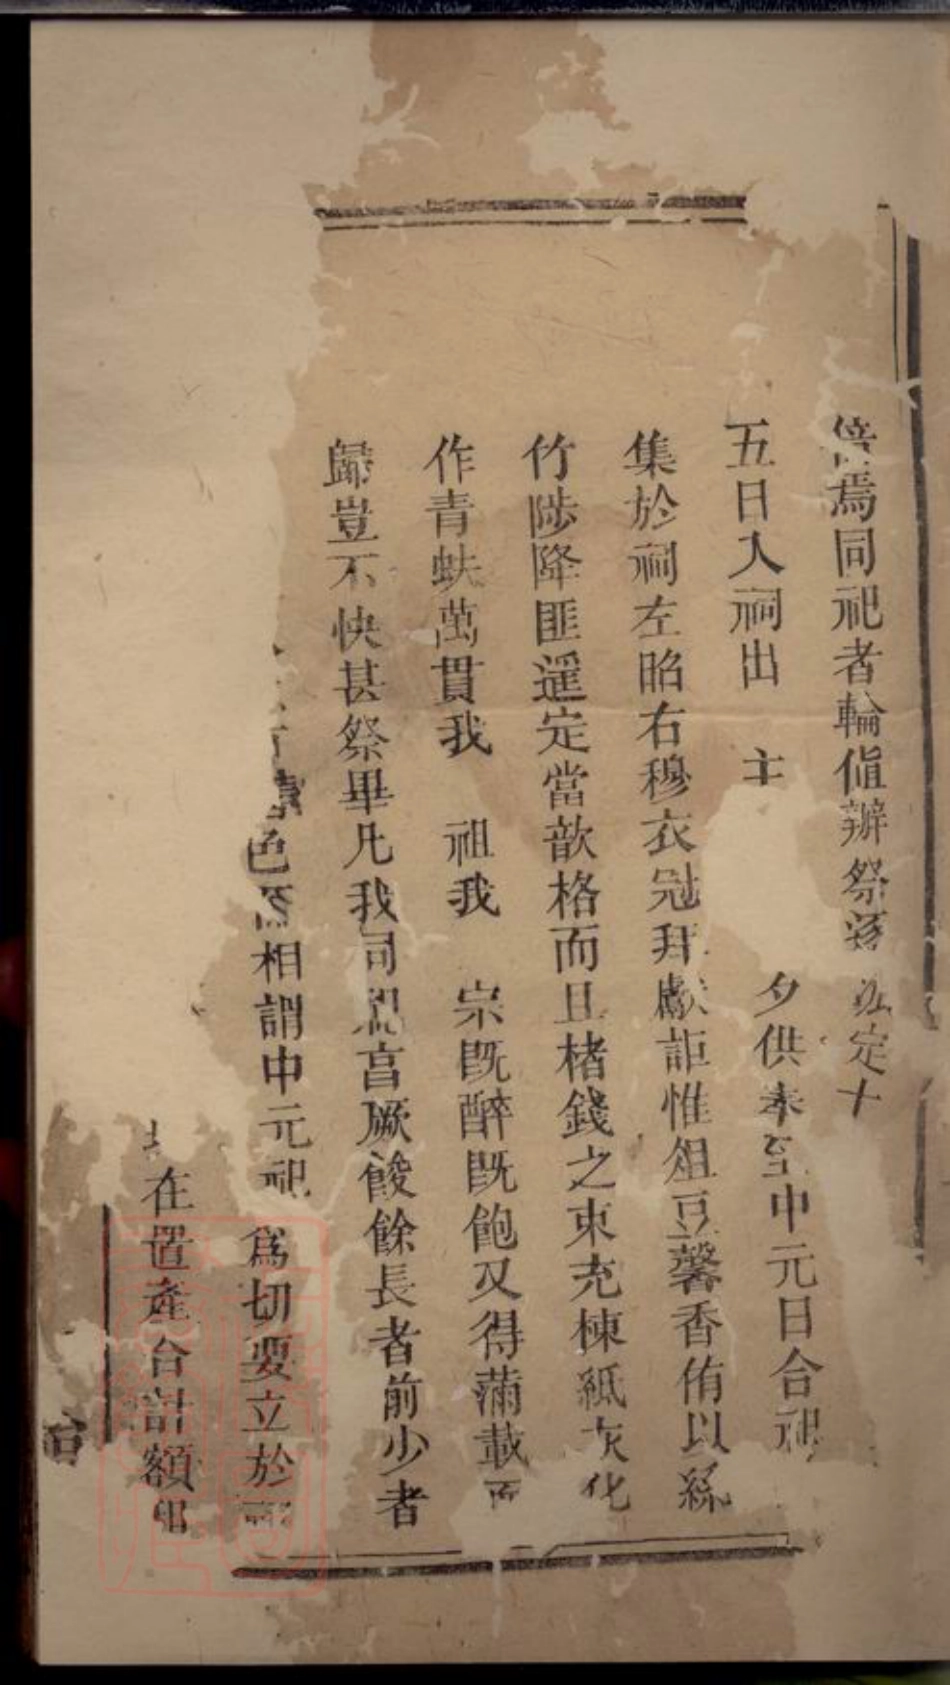 焉同祀者輪值辦祭 定十
五日入祠出 主 夕供奉至中元日合祀
集於祠左昭右穆衣冠拜獻詎惟俎豆馨香侑以絲
竹陟降匪遥定當歆格而且楮錢之束充棟紙灰化
作青蚨萬貫我 祖我 宗既醉既飽又得滿載而
歸豈不快甚祭畢凡我同祀享厥餕餘長者前少者
色 相謂中元祀 為切要立於
在置產合計額